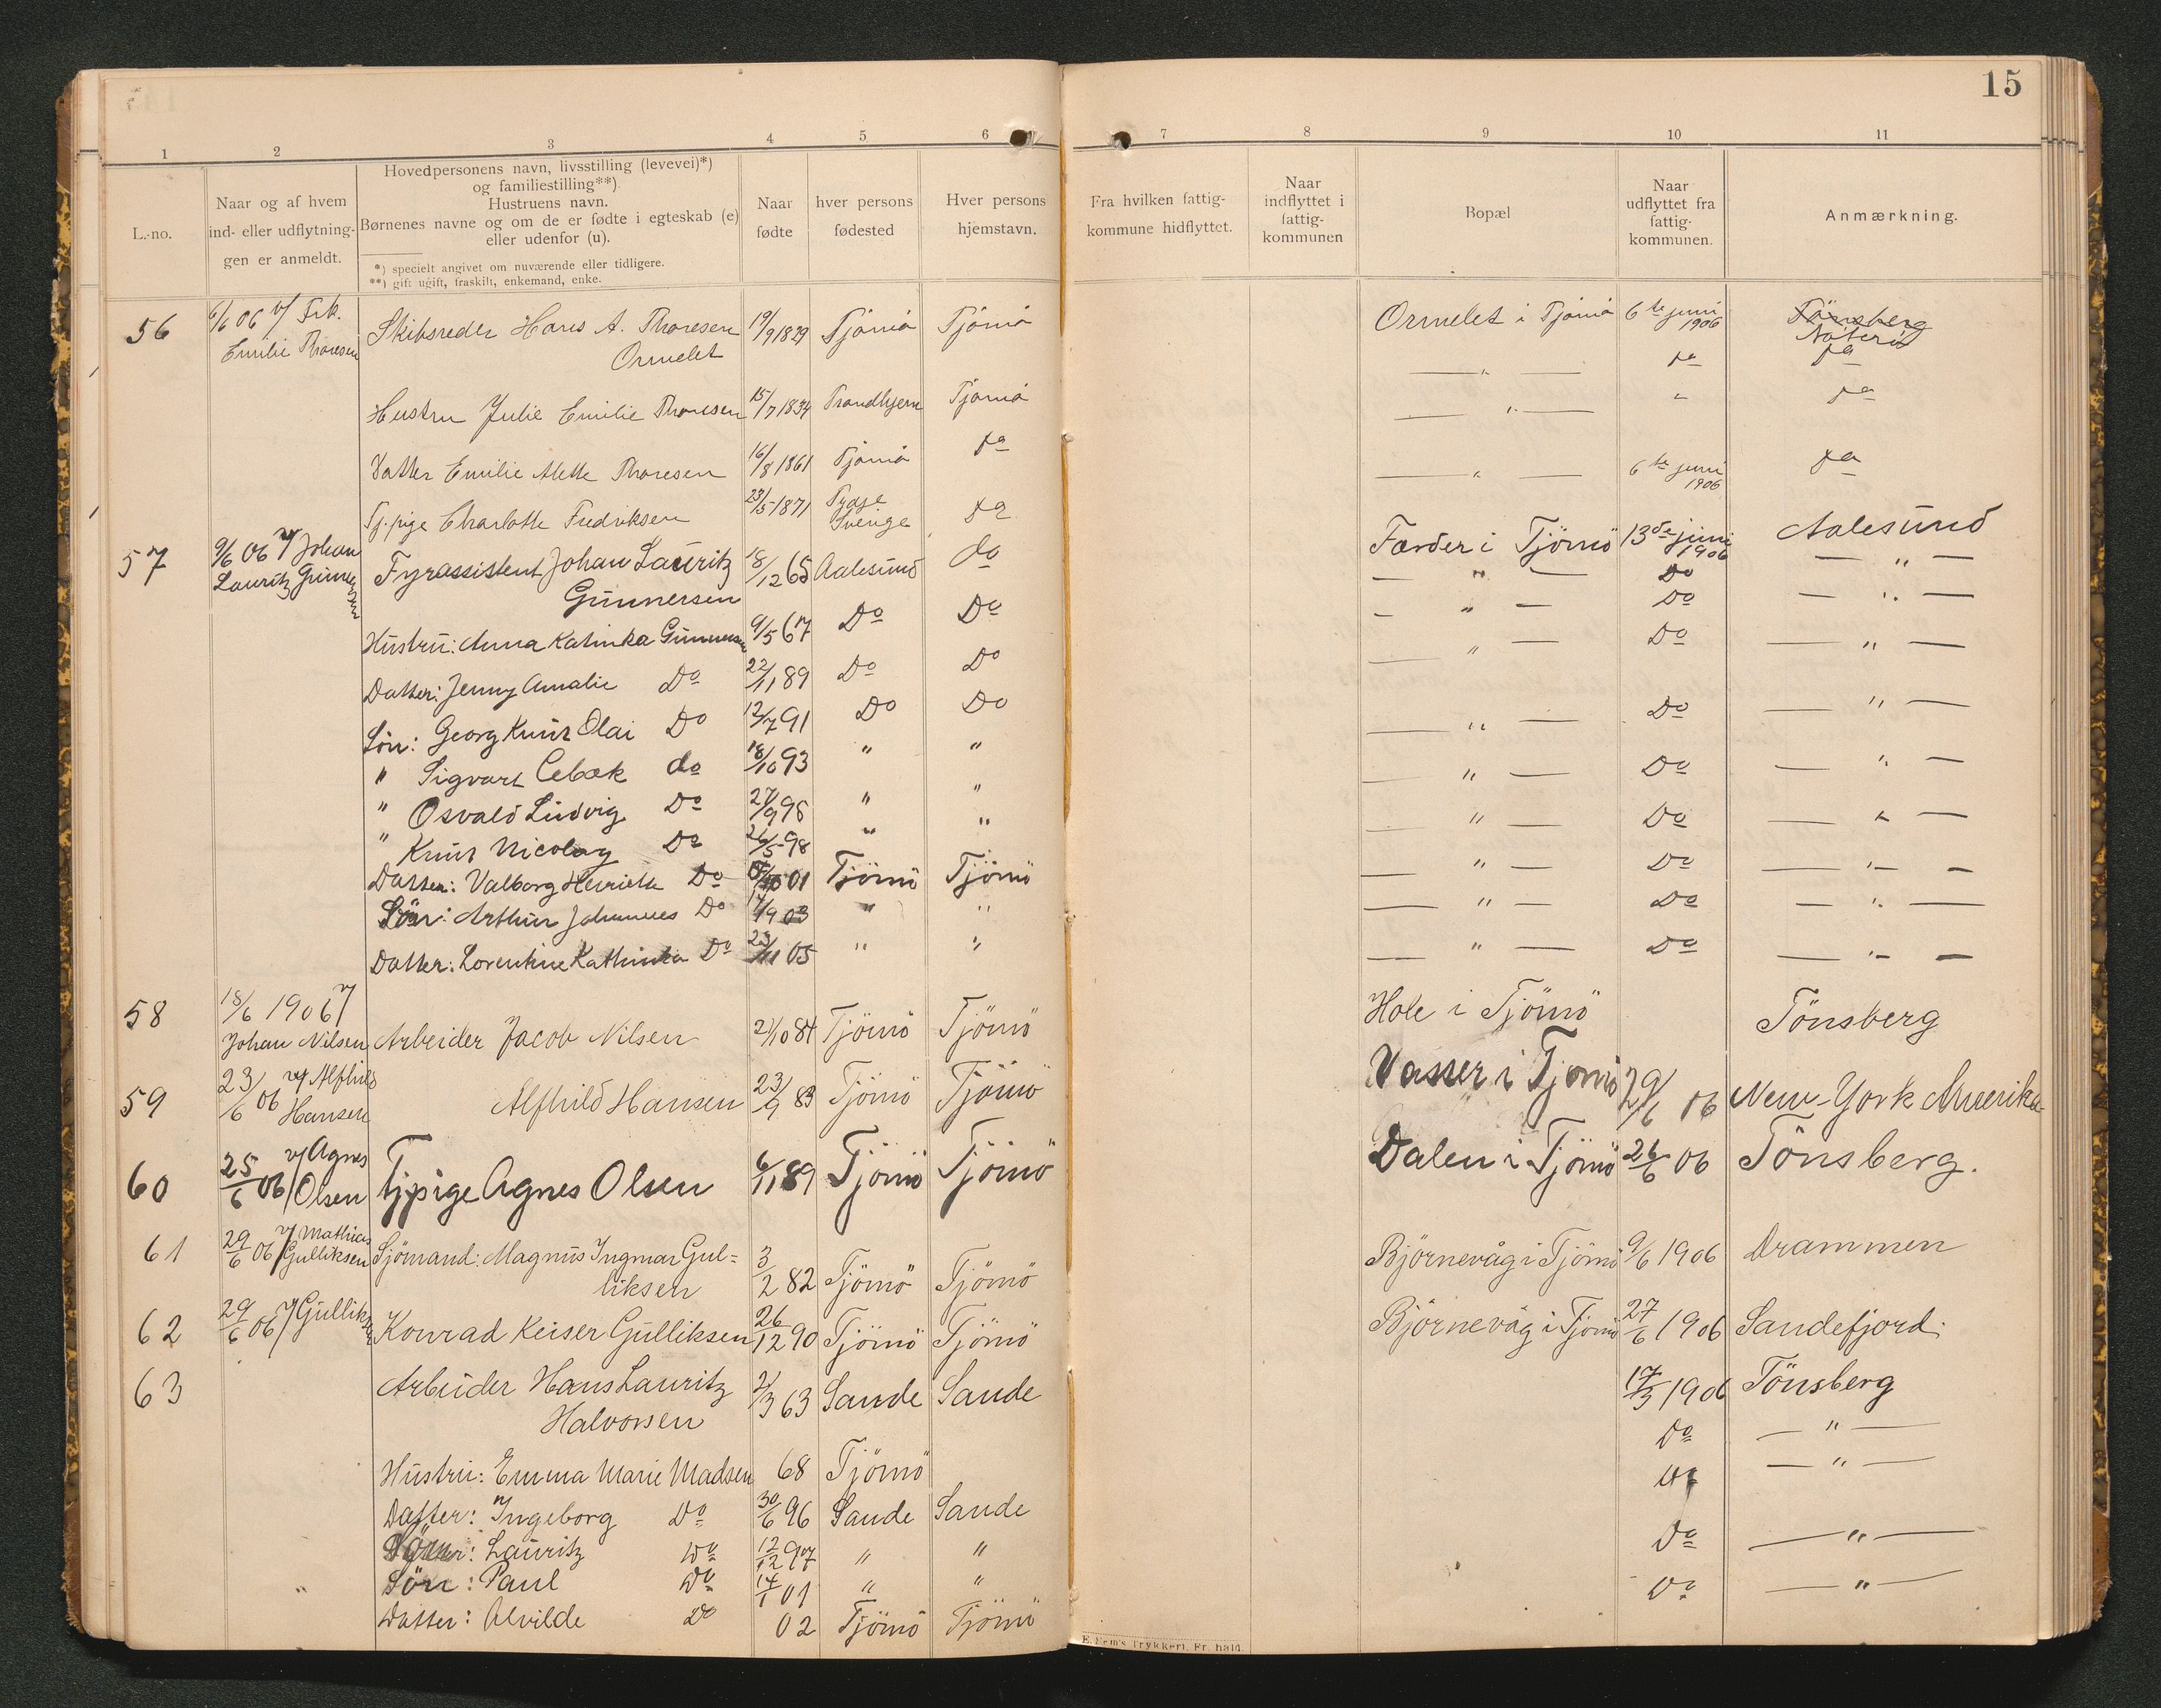 15
1 2 3 4 5 6 7 8 9 10 11
L.-no.
Naar og af hvem
ind- eller udflytnin-
gen er anmeldt.
Hovedpersonens navn, livsstilling (levevei)*)
og familiestilling**)
Hustruens navn.
Børnenes navne og om de er fødte i egteskab (e)
eller udenfor (u).
*) specielt angivet om nuværende eller tidligere.
**) gift ugift, fraskilt, enkemand, enke.
Naar
fødte
hver persons
fødested
Hver persons
hjemstavn.
Fra hvilken fattig-
kommune hidflyttet.
Naar
indflyttet i
fattig-
kommunen
Bopæl
Naar
udflyttet fra
fattig-
kommunen.
Anmærkning.
56 6/6 06 v/ Frk. Skibsreder Hans A. Thoresen 19/9 1829 Tjömö Tjömö Ormelet i Tjömö 6te juni 1906 Tönsberg
Emilie Thoresen Ormelet Nöterö
— " — da da
Hustru Julie Emilie Thoresen 15/7 1834 Trondhjem Tjömö — " — " da
Datter Emilie Mette Thoresen 16/8 1861 Tjömö da — " — 6te juni 1906 da
Tj.pige Charlotte Fredriksen 23/5 1871 Sverige da
57 9/6 06 v/ Johan Fyrassistent Johan Lauritz 18/12 65 Aalesund do Færder i Tjömö 13de juni 1906 Aalesund
Lauritz Gunnersen Gunnersen — " — Do — " —
Hustru: Anna Katinka Gunnersen 9/5 67 Do Do — " — Do — " —
Datter: Jenny Amalie Do 22/11 89 Do Do — " — Do — " —
Sön: Georg Knut Olai Do 12/7 91 Do Do — " — Do — " —
" Sigvart do 18/10 93 " " — " — Do — " —
" Osvald Ludvig Do 27/9 95 " " — " — Do — " —
" Knut Nicolay Do 26/5 98 " " — " — Do — " —
Datter: Valborg Henriette Do 01 Tjömö Tjömö — " — Do — " —
Sön: Arthur Johannes Do 14/9 03 " " — " — Do — " —
Datter: Lorentine Kathinka Do 23/11 05 " "
58 18/6 1906 v/ Hole i Tjömö Tönsberg
Johan Nilsen Arbeider Jacob Nilsen 21/10 84 Tjömö Tjömö
59 23/6 06 v/ Alfhild Hansen Alfhild Hansen 23/9 83 Tjömö Tjömö Vasser i Tjömö 29/6 06 New-York Amerika
60 25/6 06 v/ Agnes Olsen Tjpige Agnes Olsen 6/11 89 Tjömö Tjömö Dalen i Tjömö 26/6 06 Tönsberg.
61 29/6 06 v/ Mathias Gulliksen Sjömand: Magnus Ingmar Gul=
liksen 3/2 82 Tjömö Tjömö Björnevåg i Tjömö 9/6 1906 Drammen
62 29/6 06 v/ Gulliksen Konrad Keiser Gulliksen 26/12 90 Tjömö Tjömö Björnevåg i Tjömö 27/6 1906 Sandefjord.
63 Arbeider Hans Lauritz 2/3 63 Sande Sande 17/3 1906 Tönsberg
Halvorsen Do — " —
Hustru: Emma Marie Madsen 68 Tjömö — " —
Datter: Ingeborg Do 30/6 96 Sande Sande Do — " —
Lauritz Do 12/12 97 " "
Sön: Paul Do 14/1 01 " " Do — " —
Datter: Alvilde Do 02 Tjömö Tjömö
E. Sem's Trykkeri, Fr.hald.